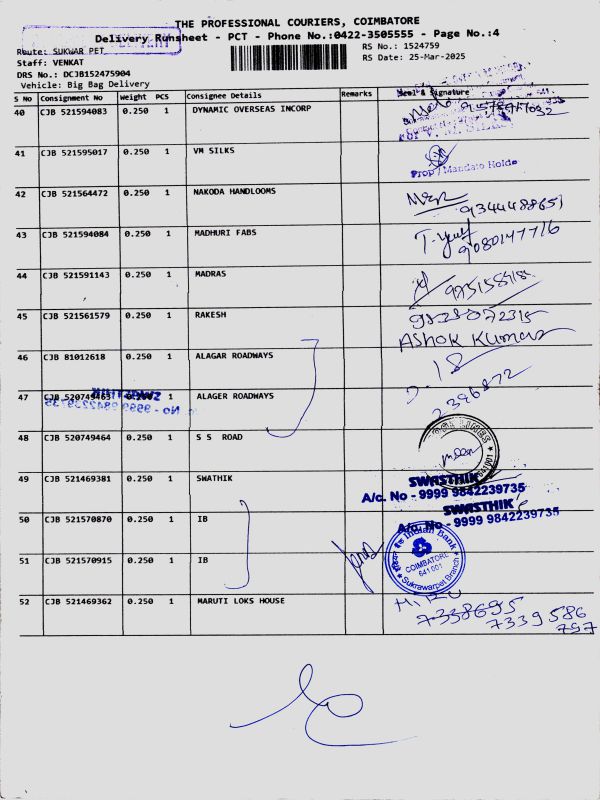 THE PROFESSIONAL COURIERS, COIMBATORE
Delivery Runsheet - PCT - Phone No.:0422-3505555 - Page No.:4
Route: SUKWAR PET
RS No.: 1524759
Staff: VENKAT
RS Date: 25-Mar-2025
DRS No.: DCJB152475904
Vehicle: Big Bag Delivery
S No Consignment No Weight PCS Consignee Details Remarks Seal & Signature
40 CJB 521594083 0.250 1 DYNAMIC OVERSEAS INCORP
41 CJB 521595017 0.250 1 VM SILKS
Prop / Mandate Holde
42 CJB 521564472 0.250 1 NAKODA HANDLOOMS
9344488651
43 CJB 521594084 0.250 1 MADHURI FABS
9080147716
44 CJB 521591143 0.250 1 MADRAS
45 CJB 521561579 0.250 1 RAKESH
ASHOK KUMAR
46 CJB 81012618 0.250 1 ALAGAR ROADWAYS
47 CJB 520749463 0.250 1 ALAGER ROADWAYS
2396872
48 CJB 520749464 0.250 1 S S ROAD
641001
49 CJB 521469381 0.250 1 SWATHIK
SWASTHIK
A/c. No - 9999 9842239735
50 CJB 521570870 0.250 1 IB
SWASTHIK
A/c. No - 9999 9842239735
51 CJB 521570915 0.250 1 IB
Indian Bank
COIMBATORE
641 001
Sukrawarpet Branch
52 CJB 521469362 0.250 1 MARUTI LOKS HOUSE
7338695
7339586
797